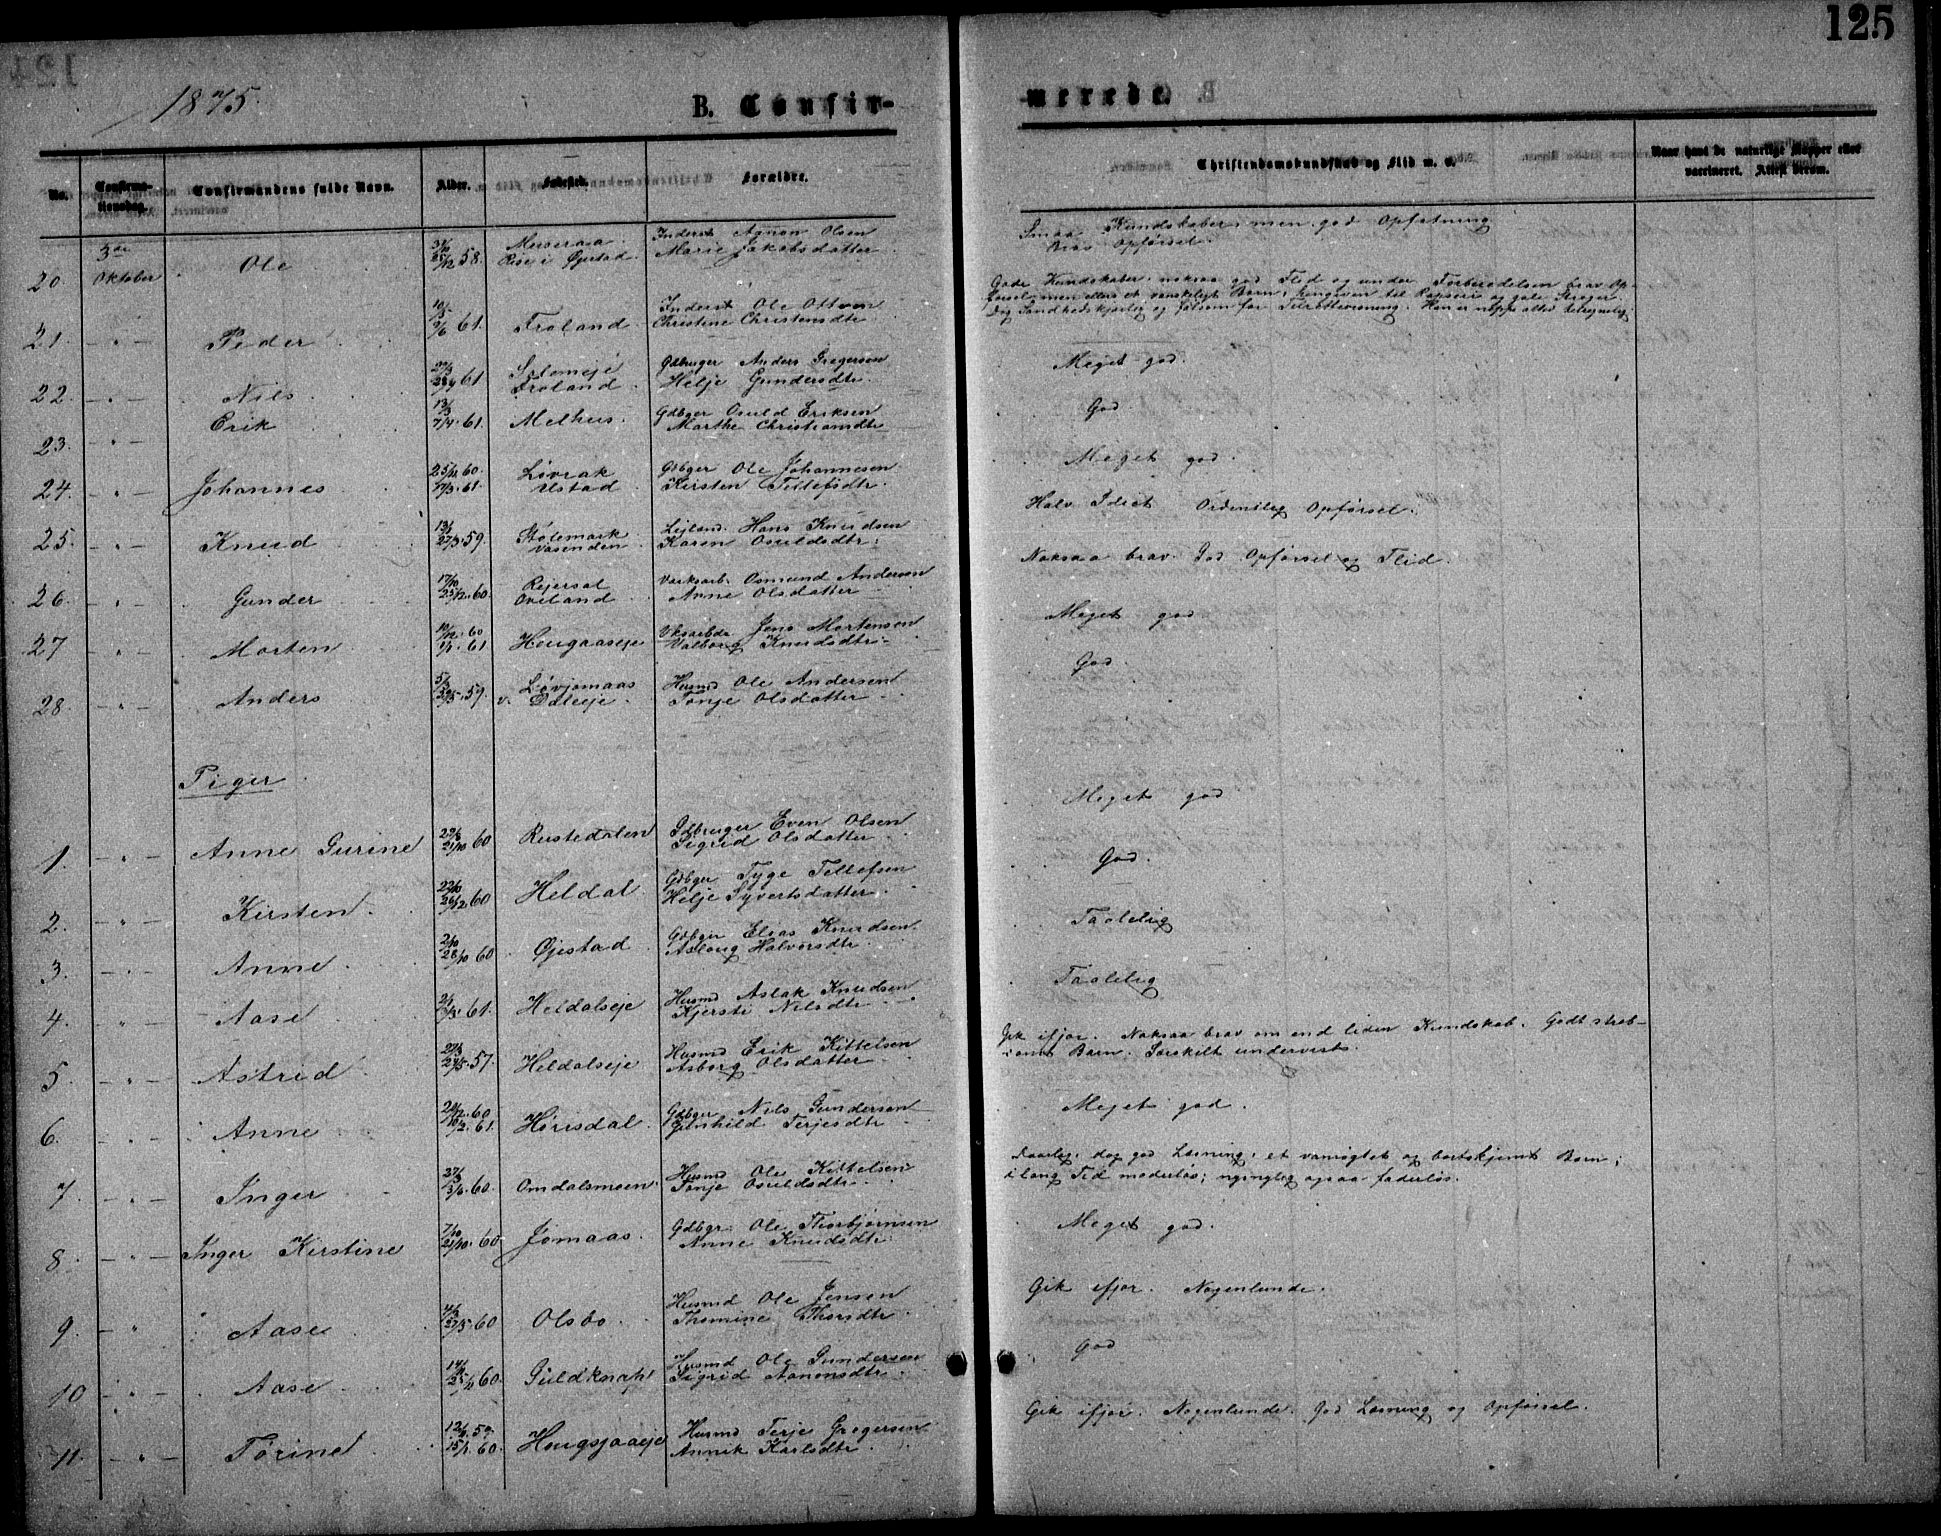 125
1875.
B. Confir-
merede.
No.
Confirma-
tionsdag.
Confirmandens fulde Navn.
Alder.
Fødested.
Forældre.
Christendomskundskab og Flid m. v.
Naar havt de naturlige Kopper eller
vaccineret. Attest derom.
20. 3die Oktober Ole 58. Rise i Øjestad. Inderst Agnon Olsen
Marie Jakobsdatter
Smaa Kundskaber, men god Opfatning
Brav Opførsel.
21. - " - Peder 61. Froland Inderst Ole Ottsen
Christine Christensdtr
Gode Kundskaber, noksaa god Flid og under Forberedelsen brav Op-
førsel, men ellers et vanskeligt Barn, hengiven til og gale Streger.
Dog Sandhedskjærlig og følsom for Tilrettevisning. Han er neppe altid tilregnelig
22. - " - Nils 61 Froland. Gdbruger Anders Gregersen
Helje Gundersdtr.
Meget god.
23. - " - Erik 7/4. 61. Melhus. Gdbger Osuld Eriksen
Marthe Christiansdtr
God
24. - " - Johannes 60.
61. Løvrak
Ustad Gdbger Ole Johannesen
Kirsten Tellefsdtr.
Meget god.
25. - " - Knud 59. Stølemark
Vasenden Leilænd. Hans Knudsen
Karen Osuldsdtr.
Halv Idiot Ordentlig Opførsel.
26. - " - Gunder 25/12. 60. Rejersøl
Oveland Værksarb. Osmund Andersen
Anne Olsdatter
Noksaa brav. God Opførsel og Flid.
27 - " - Morten 60
61 Hougaaseje Vksarbdr Jens Mortensen
Valborg Knudsdtr.
Meget god
28. - " - Anders 59. Løvjomaas
v. Daleeje. Husmd Ole Andersen
Tonje Olsdatter
God.
Piger
1. - " - Anne Gurine 21/10 60 Rustedalen Gdbruger Even Olsen
Sigrid Olsdatter
Meget god
2. - " - Kirsten. 26/12. 60 Heldal Gdbger Tyge Tellefsen
Helje Syvertsdatter
God.
3. - " - Anne 28/10 60 Øjestad Gdbger Elias Knudsen
Aslaug Halvorsdtr
Taalelig
4. - " - Aase 61. Heldalseje Husmd Aslak Knudsen
Kjersti Nilsdtr
Taalelig
5 - " - Astrid 57. Heldalseje Husmd Erik Kittelsen
Asborg Olsdatter
Gik ifjor. Noksaa brav om end liden Kundskab. Godt stræb-
somt Barn. Særskilt undervist.
6. - " - Anne 60
61. Hørisdal. Gdbger Nils Gundersen
Gunhild Terjesdtr
Meget god.
7. - " - Inger 60. Omdalsmoen. Husmd Ole Kittelsen
Tonje Osuldsdtr
Daarlig, dog god Læsning, et vanrøgtet og bortskjæmt Barn;
i lang Tid moderløs; nyinglig ogsaa faderløs.
8 - " - Inger Kirstine 7/10
21/10. 60. Jomaas. Gdbgr. Ole Thorbjørnsen
Anne Knudsdtr
Meget god.
9. - " Aase 27/5. 60 Olsbo. Husmd Ole Jensen
Thomine Thorsdtr
Gik ifjor. Nogenlunde.
10 - " - Aase 60. Guldknap Husmd Ole Gundersen
Sigrid Aanonsdtr
God
11. - " - Torine 59.
60. Hougsjaaeje Husmd Terje Gregersen
Annik Karlsdtr
Gik ifjor. Nogenlunde. God Læsning og Opførsel.